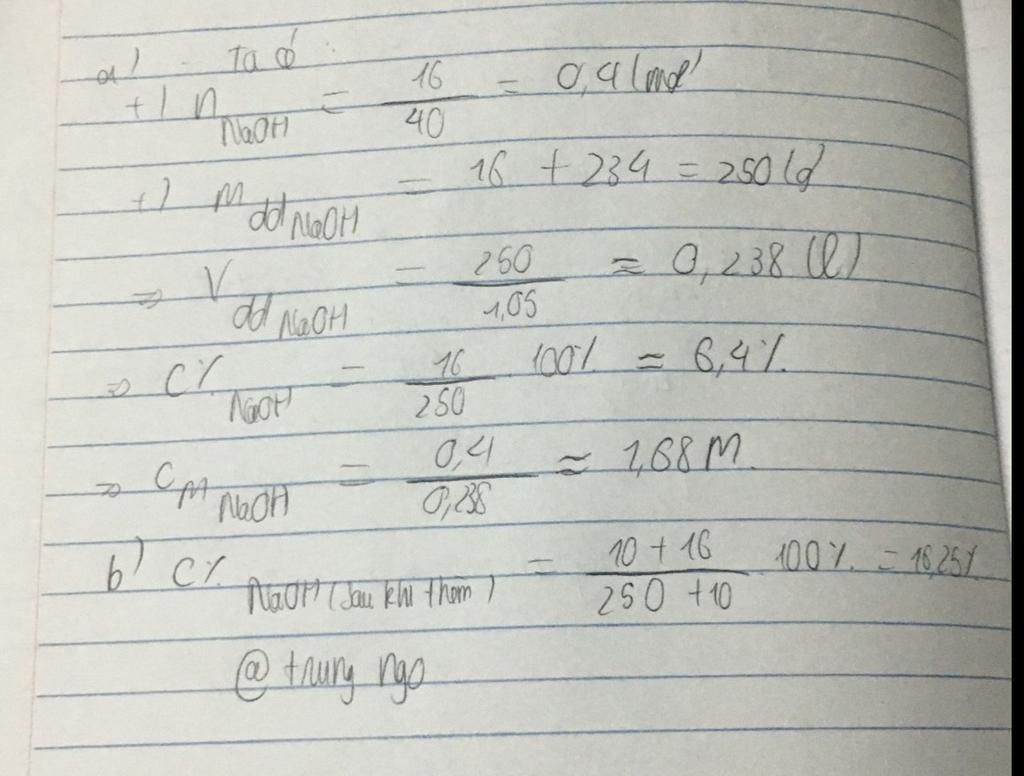 a) Ta có:
+) n NaOH = 16/40 = 0,4 (mol)
+) m dd NaOH = 16 + 234 = 250 (g)
=> V dd NaOH = 250/1,05 ≈ 0,238 (l)
=> C% NaOH = 16/250 100% = 6,4%
=> C M NaOH = 0,4/0,238 ≈ 1,68 M.
b) C% NaOH (sau khi thêm) = 10 + 16/250 + 10 100% = 16,25%
@ trung ngo